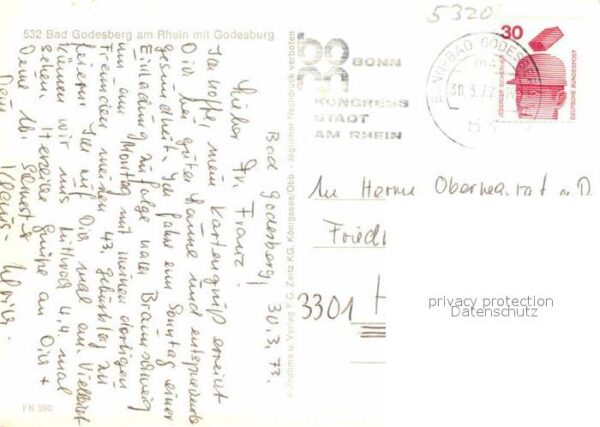 532 Bad Godesberg am Rhein mit Godesburg
Bad Godesberg, 30.3.73.
Lieber Dr. Franz!
Ich hoffe, mein Kartengruß erreicht
Dich bei guter Laune und entsprechender
Gesundheit. Ich fahre am Sonntag einer
Einladung zufolge nach Braunschweig
um am Montag mit meinen dortigen
Freunden meinen 43. Geburtstag zu
feiern. Ruf Dich mal an. Vielleicht
können wir uns Mittwoch 4.4. mal
sehen. Herzliche Grüße an Dich +
Deine
Dein Klaus-
Aufnahme u. Verlag F.G. Zeitz KG, Königssee/Obb. - Jeglicher Nachdruck verboten
FK 590
5320
BONN
KONGRESS
STADT
AM RHEIN
BONN-BAD GODESBERG
30.3.73
53
30
JEDERZEIT SICHERHEIT
DEUTSCHE BUNDESPOST
An Herrn
Fried
3301
privacy protection
Datenschutz